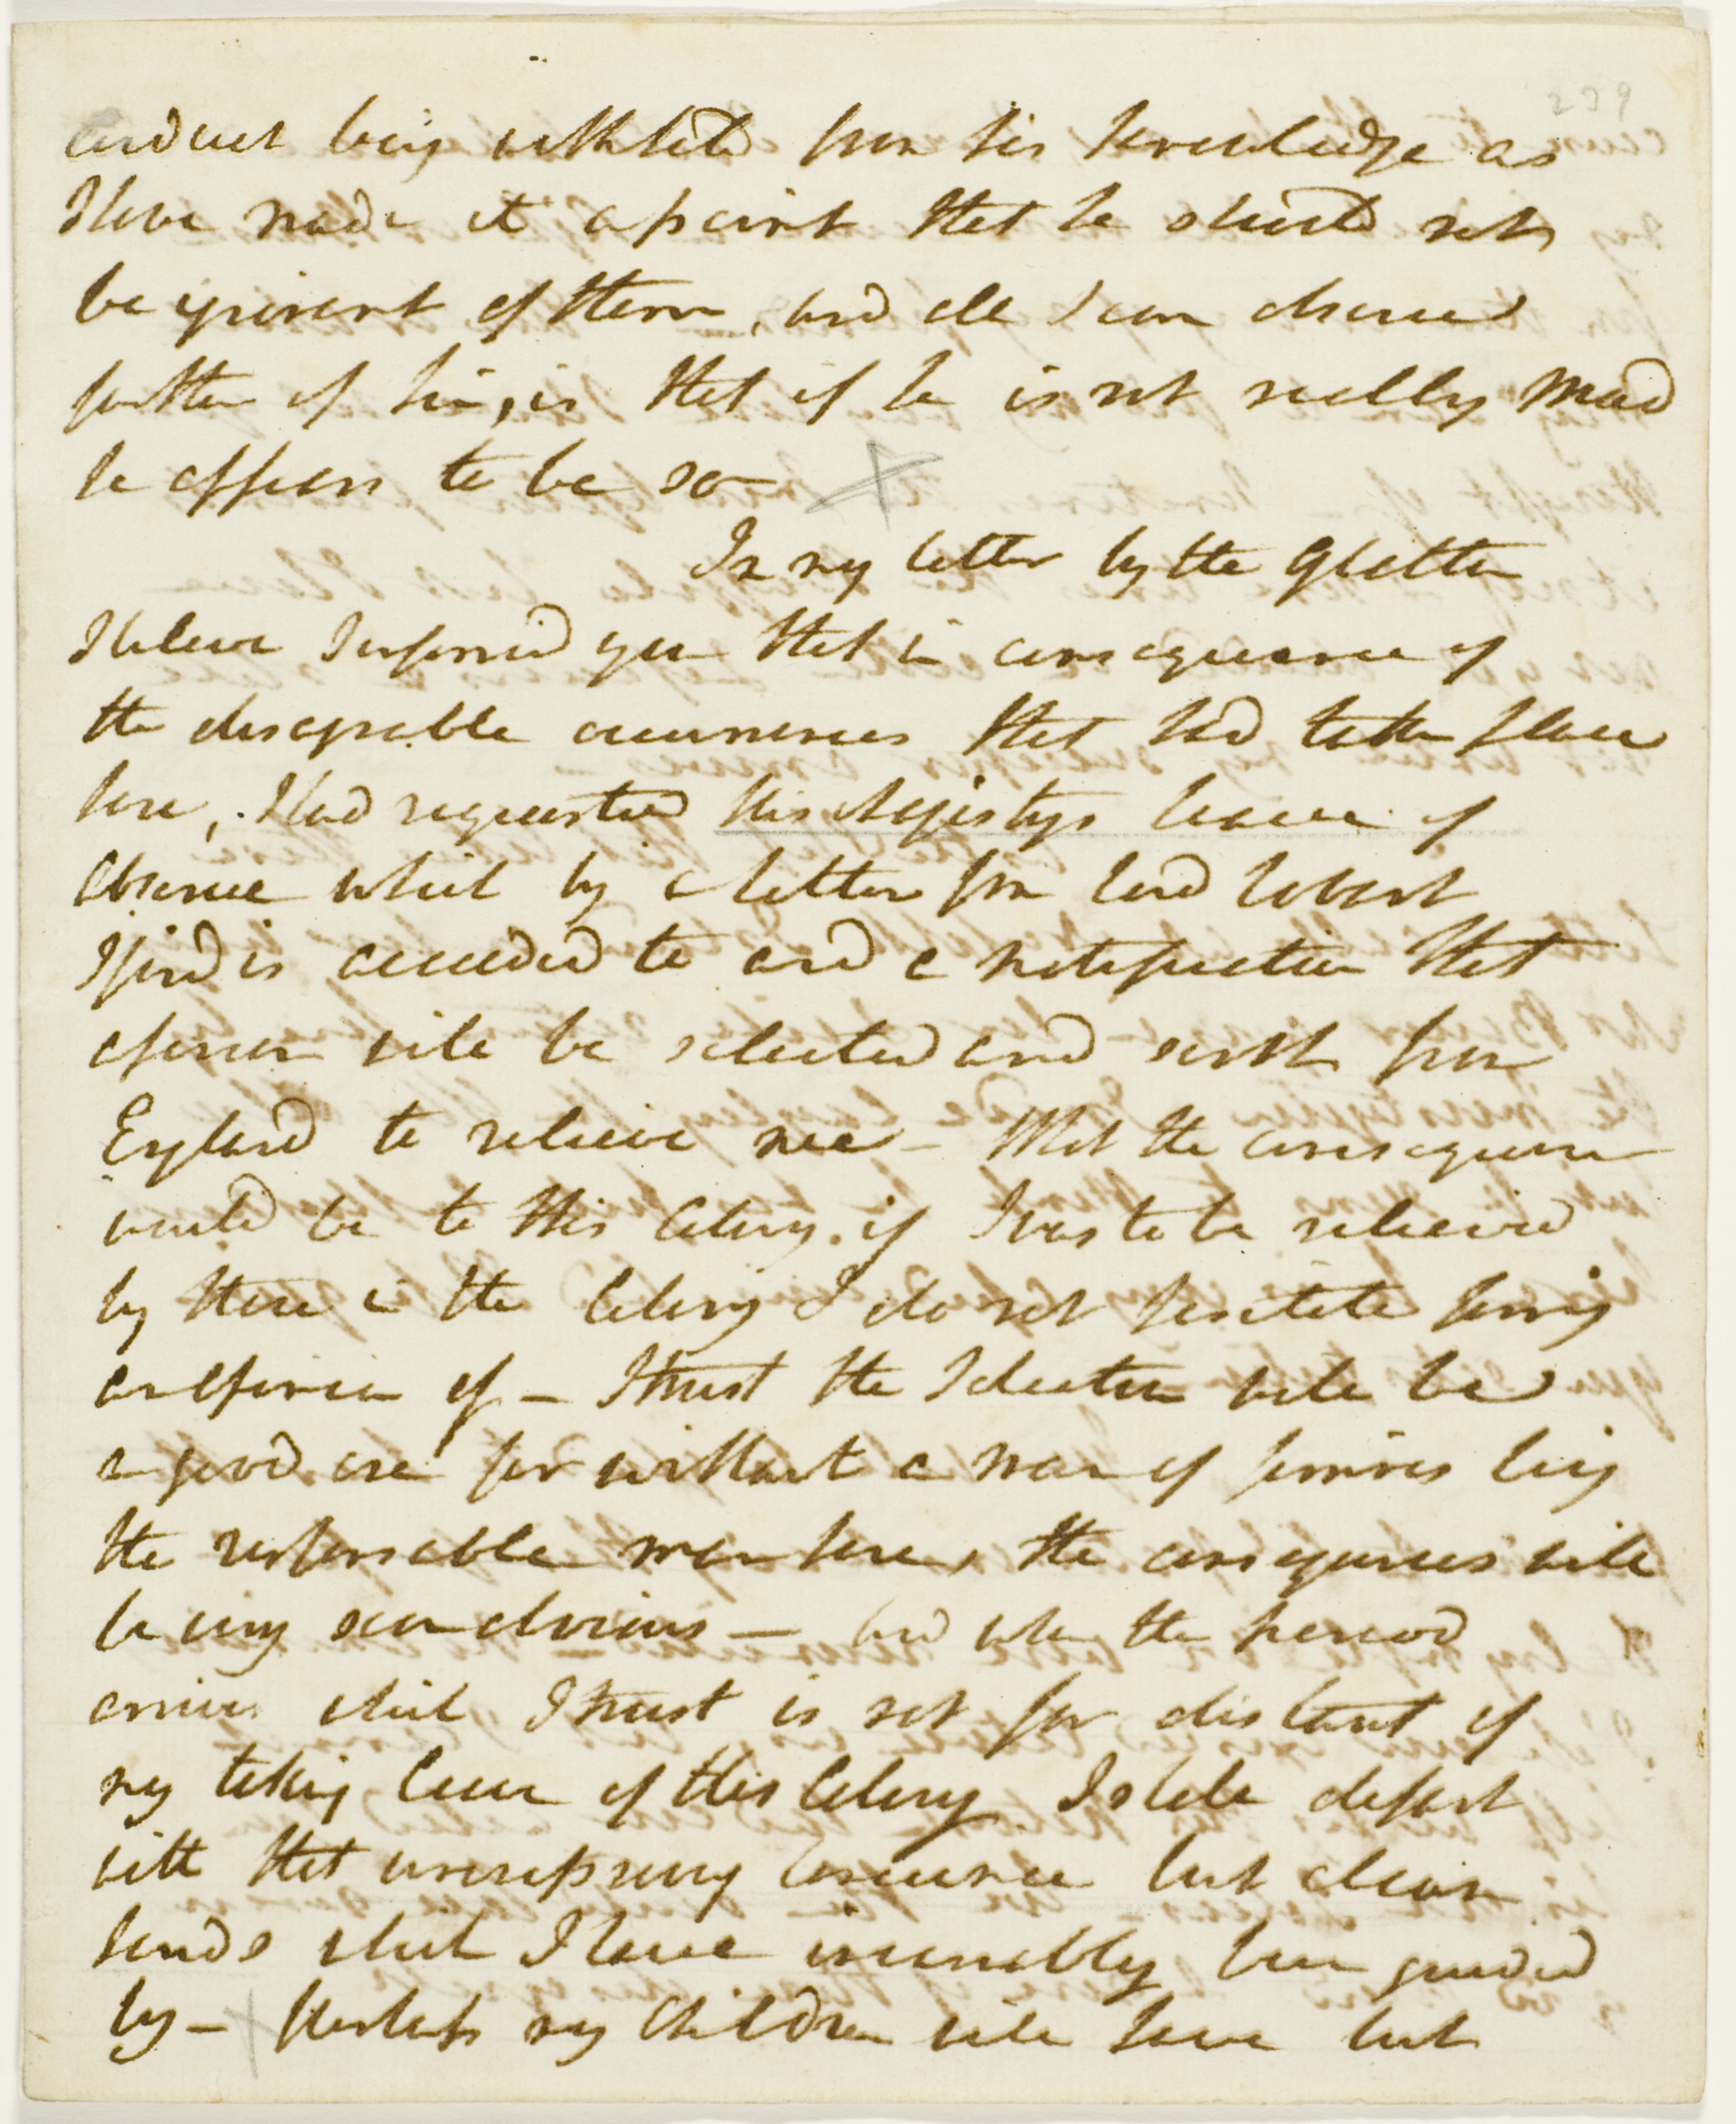 239
conduct being withheld from his knowledge as
I have made it a point that he should not
be ignorant of them, and all I can observe
further of him, is that if he is not really Mad
he appears to be so
In my letter by the Glatton
I believe I informed you that in consequence of
the disagreeable occurrences that had taken place
here, I had requested His Majestys leave of
absence which by a letter from Lord Hobart
I find is acceeded to and a notification that
a person will be selected and sent from
England to relieve me – What the consequence
would be to this Colony if I was to be relieved
by those in the Colony I do not hesitate forming
an opinion of – I trust the Selection will be
a good one for without a Man of firmness being
the responsable man here, the consequences will
be very soon obvious — And when the period
arrives which I trust is not far distant of
my taking leave of this Colony I shall depart
with that unreproving Conscience but clean
hands which I have invariably been guided
by – Perhaps my Children will have but